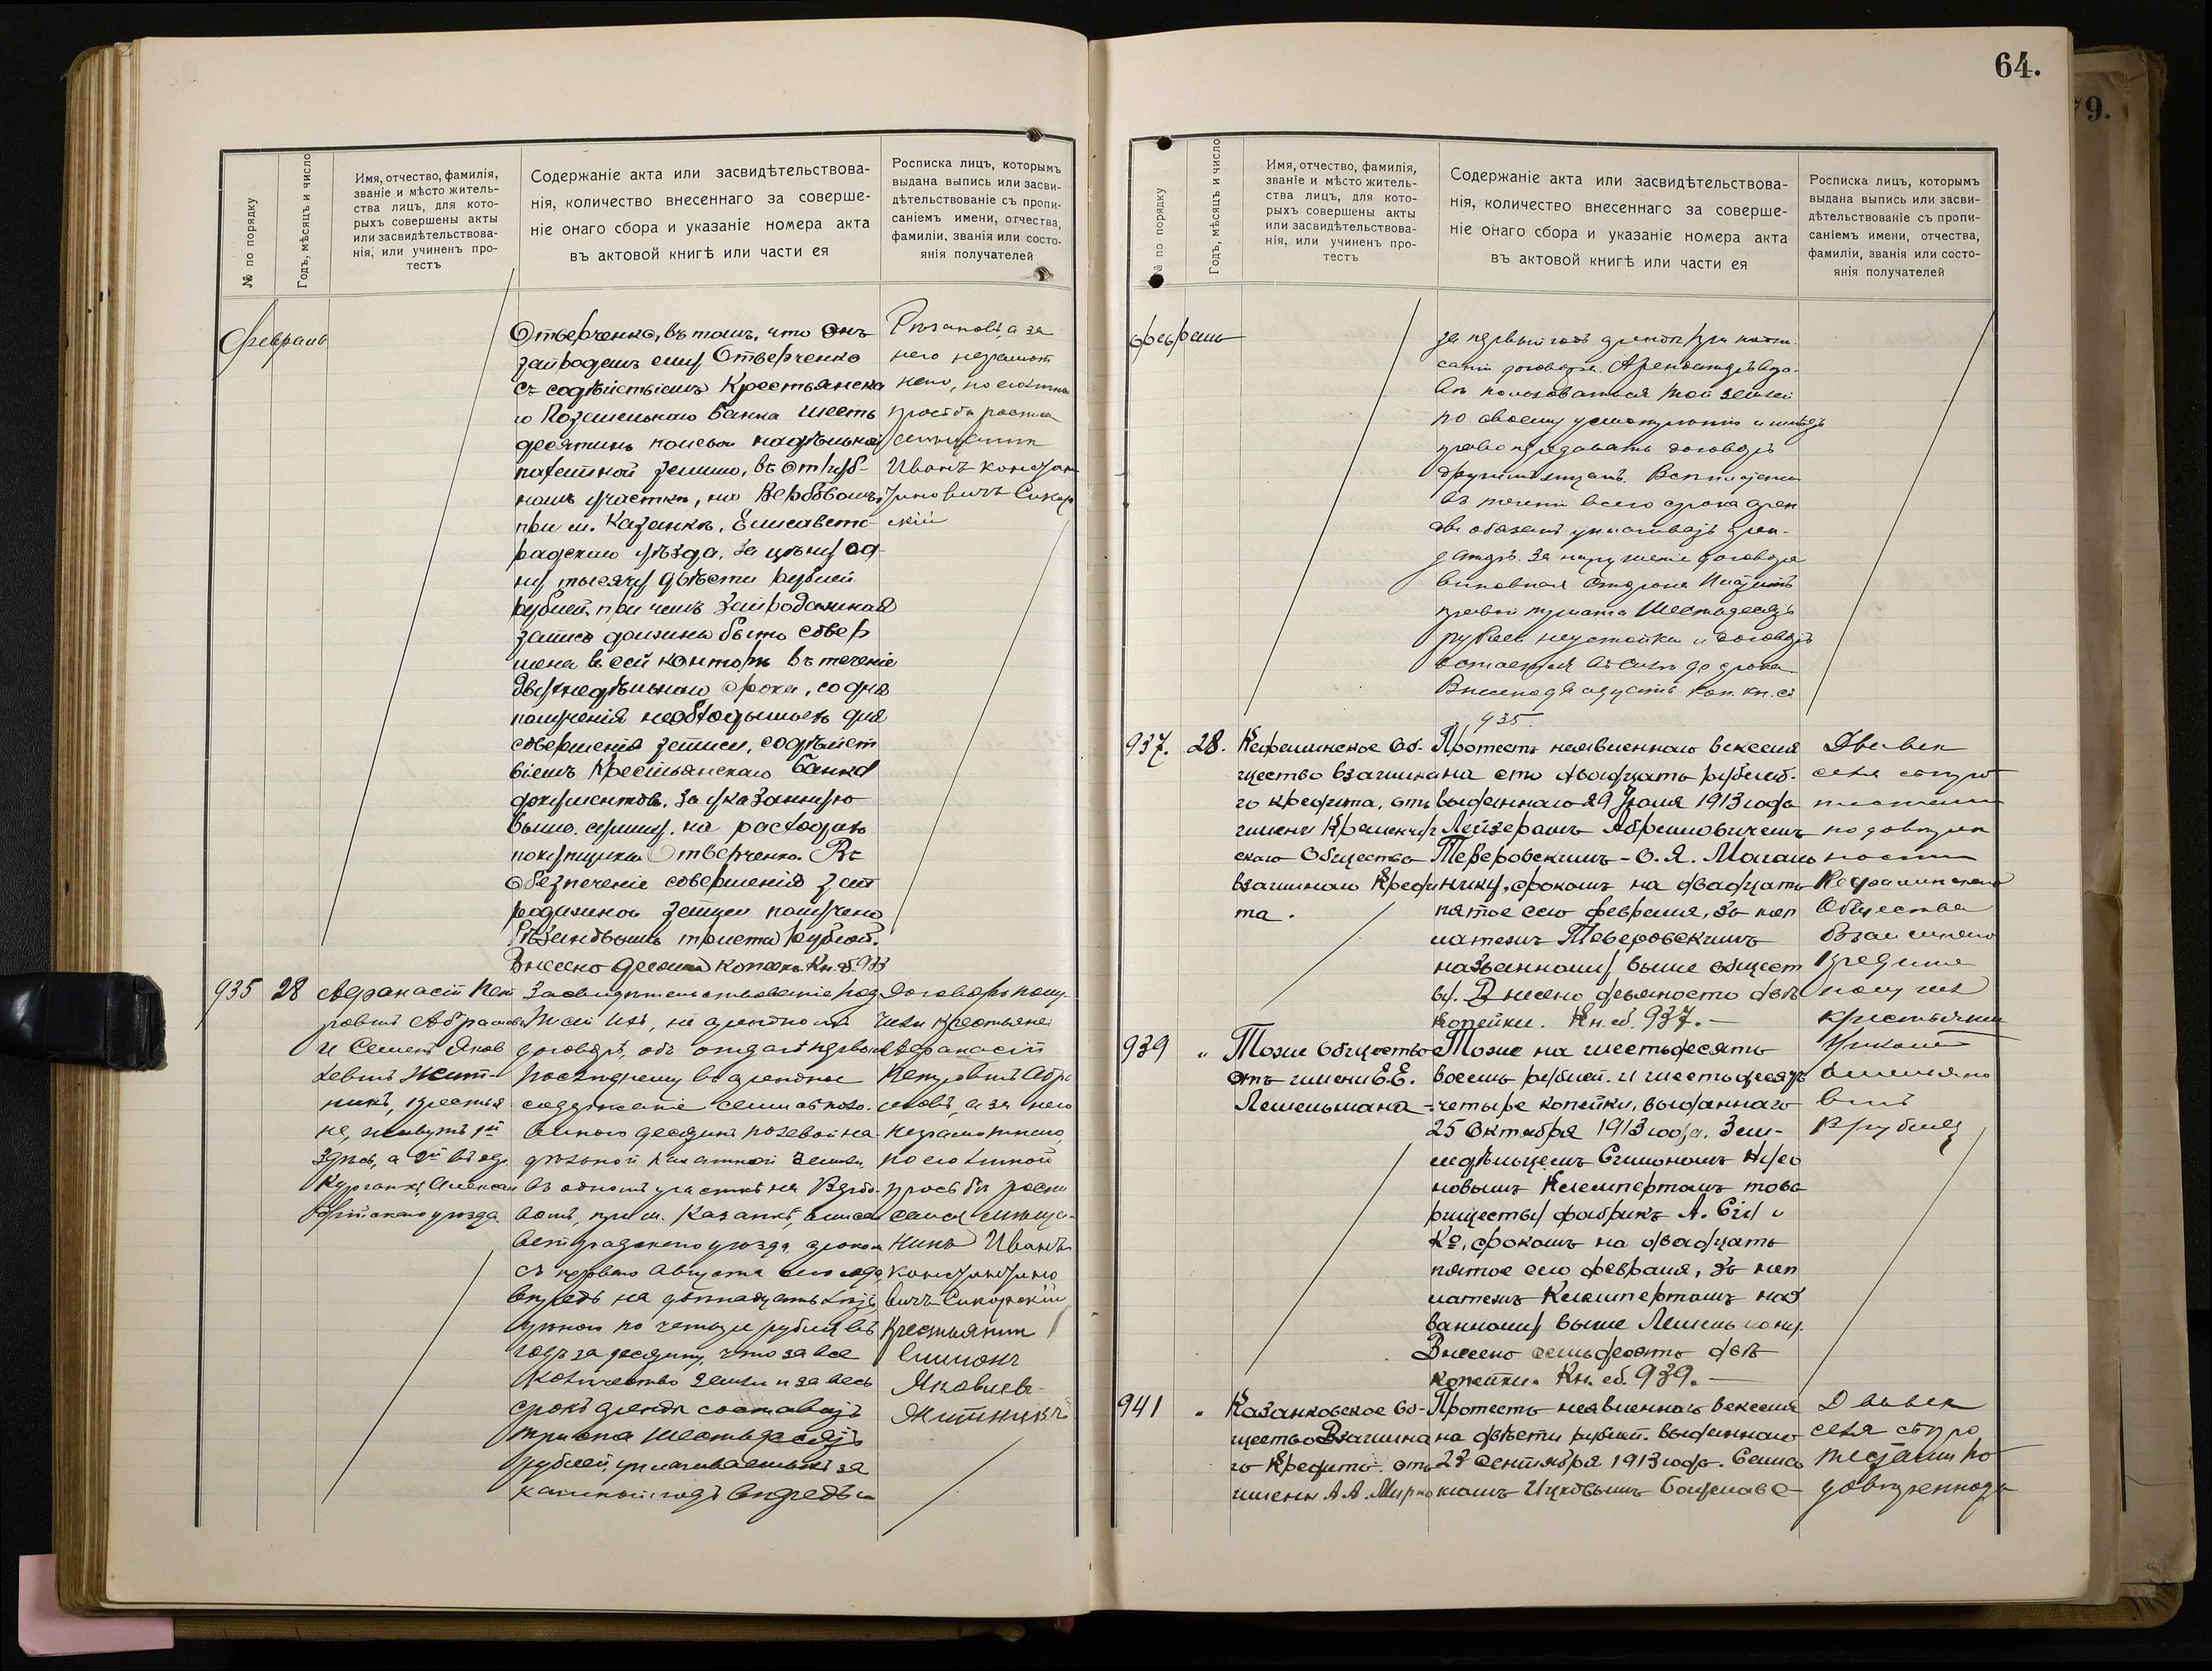 64.
79.
№ по порядку
Годъ, мѣсяцъ и число
Имя, отчество, фамилія,
званіе и мѣсто житель-
ства лицъ, для кото-
рыхъ совершены акты
или засвидѣтельствова-
нія, или учиненъ про-
тестъ
Содержаніе акта или засвидѣтельствова-
нія, количество внесеннаго за соверше-
ніе онаго сбора и указаніе номера акта
въ актовой книгѣ или части ея
Росписка лицъ, которымъ
выдана выпись или засви-
дѣтельствованіе съ пропи-
саніемъ имени, отчества,
фамиліи, званія или состо-
янія получателей
Февраль
Отверченко, въ томъ, что онъ
запродалъ ему Отверченко
съ содѣйствіемъ Крестьянска
го Поземельнаго банка шесть
десятинъ полевой надѣльной
пахатной земли, въ отруб-
номъ участкѣ, на Вербовомъ,
при м. Казанкѣ, Елисавет-
радскаго уѣзда, за цѣну од-
ну тысячу двѣсти рублей
рублей, при чемъ запродажная
запись должна быть совер
шена въ сей конторѣ въ теченіе
двухнедѣльнаго срока, со дня
полученія необходимыхъ для
совершенія записи, содѣйст
віемъ Крестьянскаго банка
документовъ, за указанную
выше сумму, на расходы
покупщика Отверченко. Въ
обезпеченіе совершенія зап
родажной записи получено
Рѣзановымъ триста рублей.
Внесено десять копѣекъ. Кн. об. 933
Рѣзановъ, а за
него неграмот
наго, по его личн
просьбѣ роспи
Иванъ Констан
тиновичъ Сикор
скій
935
28
Афанасій Пет
ровичъ Абрамовъ
и Семенъ Яков
левичъ Жит-
никъ, крестья
не, живутъ 1й
здѣсь, а 2й въ дер.
Курганкѣ, Алексан
дрійскаго уѣзда.
Засвидѣтельствованіе под
договорѣ, объ отдачѣ первымъ
послѣднему въ арендное
содержаніе семи съ поло-
виною десятинъ полевой на-
дѣльной пахатной земли,
въ одномъ участкѣ на Вербо-
вомъ, при м. Казанкѣ, Елиса
ветградскаго уѣзда, срокомъ
съ перваго Августа сего года
впредь на двѣнадцать лѣтъ
цѣною по четыре рубля въ
годъ за десятину, что за все
количество земли и за весь
срокъ аренды составитъ
триста шестьдесятъ
рублей, уплачиваемыхъ за
каждый годъ впредь и
Договоръ полу-
чили крестьяне:
Афанасій
Петровичъ Абра
мовъ, а за него
неграмотнаго,
по его личной
просьбѣ роспи
сался мѣща-
нинъ Иванъ
Константино
вичъ Сикорскій
Крестьянинъ
Симонъ
Яковлев-
Житникъ
№ по порядку
Годъ, мѣсяцъ и число
Имя, отчество, фамилія,
званіе и мѣсто житель-
ства лицъ, для кото-
рыхъ совершены акты
или засвидѣтельствова-
нія, или учиненъ про-
тестъ
Содержаніе акта или засвидѣтельствова-
нія, количество внесеннаго за соверше-
ніе онаго сбора и указаніе номера акта
въ актовой книгѣ или части ея
Росписка лицъ, которымъ
выдана выпись или засви-
дѣтельствованіе съ пропи-
саніемъ имени, отчества,
фамиліи, званія или состо-
янія получателей
февраль
за первый годъ аренды при напи-
саніи договора. Арендаторъ вра-
въ пользоваться той землей
по своему усмотрѣнію и имѣетъ
право передавать договоръ
другимъ лицамъ. Всѣ платежи
въ теченіи всего срока арен
ды обязанъ уплачивать арен-
даторъ. За нарушеніе договора
виновная сторона платитъ
правой триста шестьдесятъ
рублей неустойки и договоръ
остается въ силѣ до срока.
935.
937.
28.
Общество взаимна
го кредита, отъ
имени Кременчуг
скаго Общества
взаимнаго Креди
та.
Протестъ неявленнаго векселя
на сто двадцать рублей.
выданнаго 29 Іюля 1913 года
Лейзеромъ Абрамовичемъ
Теверовскимъ - О. Я. Могиль
нику, срокомъ на двадцать
пятое сего февраля, за неп
латежъ Теверовскимъ
названному выше общест
ву. Внесено девяносто двѣ
копейки. Кн. об. 937. -
Два век
селя съ про
тестами
по довѣрен
ности
Общества
Взаимнаго
Кредита
получилъ
крестьянинъ
939
"
Тоже общество
отъ имени Е.Е.
Лемельмана -
Тоже на шестьдесятъ
восемь рублей и шестьдесятъ
четыре копейки, выданнаго
25 Октября 1913 года, Зем-
ледѣльцемъ Симономъ
новымъ Клемпертомъ това
риществу фабрикъ А. Сіу и
Ко, срокомъ на двадцать
пятое сего февраля, за неп
латежъ Клемпертомъ наз
ванному выше Лемельману.
Внесено семьдесятъ двѣ
копейки. Кн. об. 939. -
941
"
Казанковское Об-
щество Взаимна
го Кредита. отъ
имени А.А.
Протестъ неявленнаго векселя
на двѣсти рублей. выданнаго
23 Сентября 1913 года.
Два век
селя съ про
тестами по